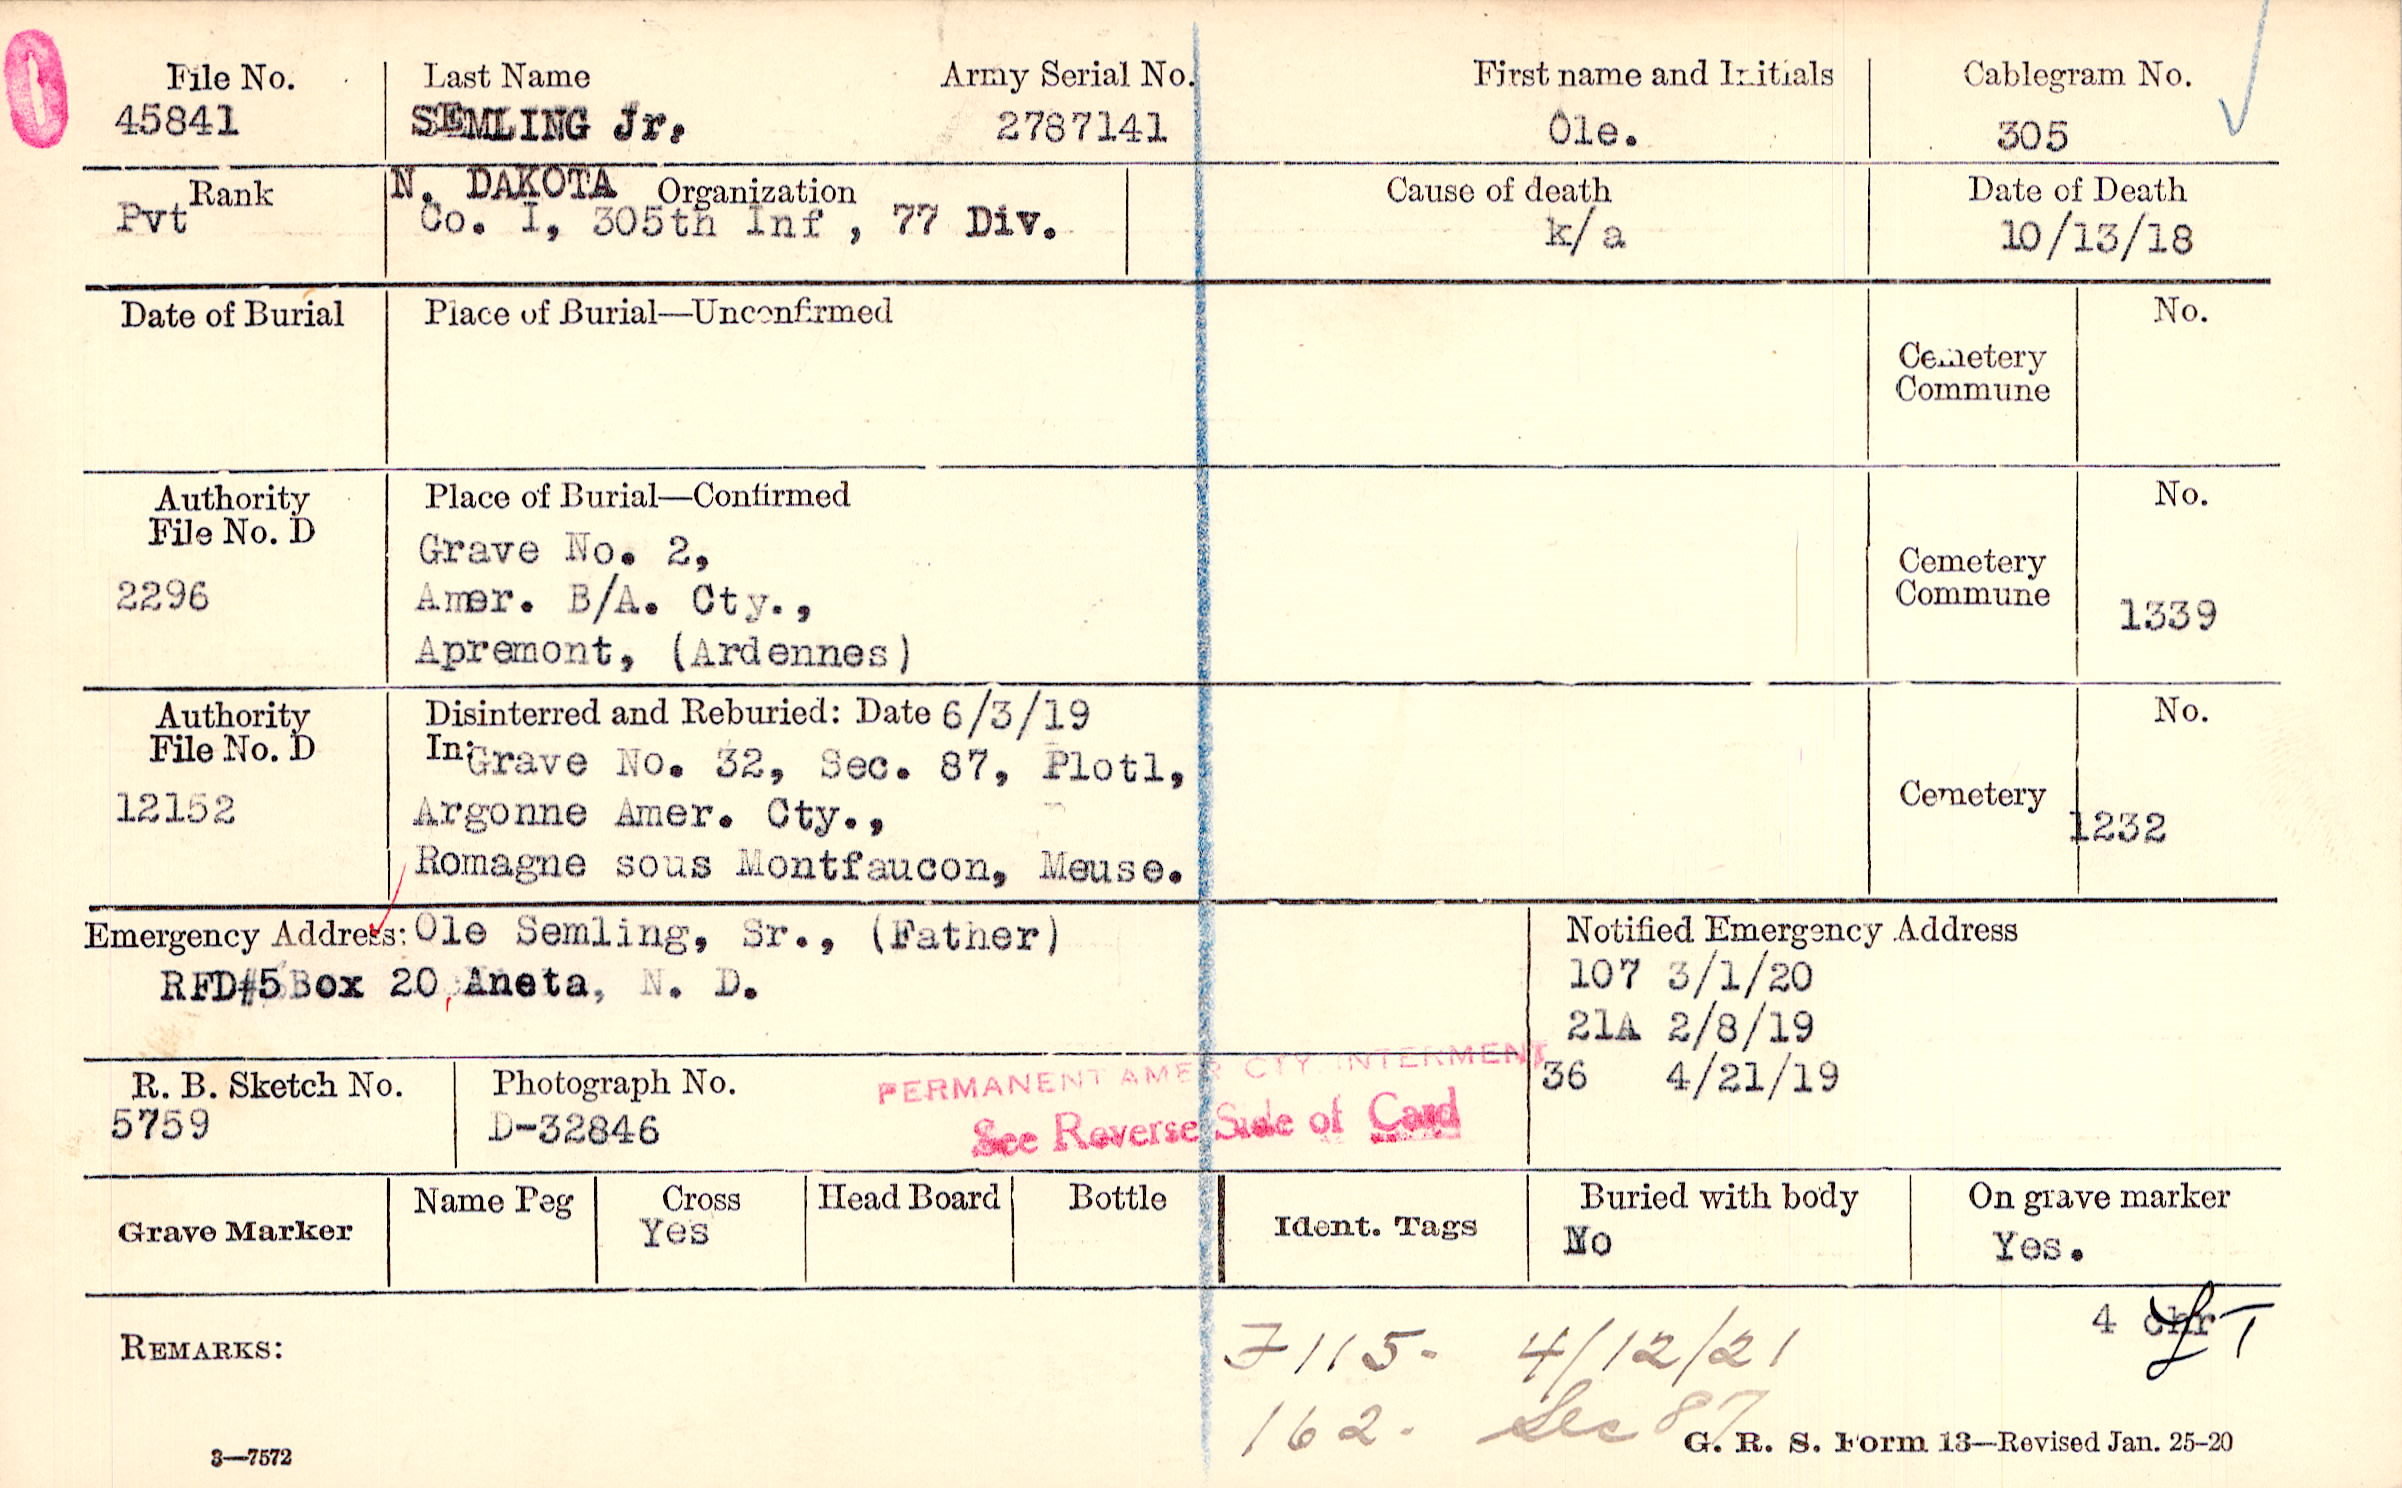 File No. Last Name Army Serial No. First name and Initials Cablegram No.
45841 SEMLING Jr. 2787141 Ole. 305
Rank N. DAKOTA Organization Cause of death Date of Death
Pvt Co. I, 305th Inf , 77 Div. k/a 10/13/18
Date of Burial Place of Burial—Unconfirmed No.
Cemetery
Commune
Authority Place of Burial—Confirmed No.
File No. D
Grave No. 2,
2296 Amer. B/A. Cty., Cemetery
Commune 1339
Apremont, (Ardennes)
Authority Disinterred and Reburied: Date 6/3/19 No.
File No. D In: Grave No. 32, Sec. 87, Plot1,
12152 Argonne Amer. Cty., Cemetery 1232
Romagne sous Montfaucon, Meuse.
Emergency Address: Ole Semling, Sr., (Father) Notified Emergency Address
RFD#5 Box 20, Aneta, N. D. 107 3/1/20
21A 2/8/19
36 4/21/19
R. B. Sketch No. Photograph No. PERMANENT AMER CTY INTERMENT
5759 D-32846 See Reverse Side of Card
Grave Marker Name Peg Cross Head Board Bottle Ident. Tags Buried with body On grave marker
Yes No Yes.
4
REMARKS: 7115- 4/12/21
162- Sec 87
3—7572 G. R. S. Form 13—Revised Jan. 25-20